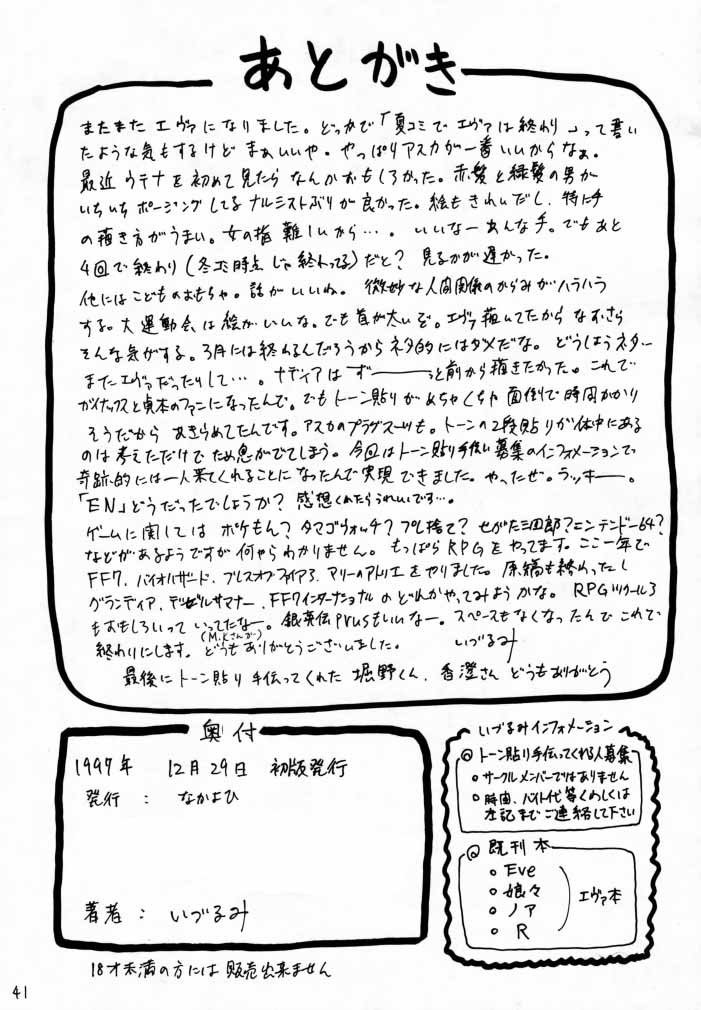 あとがき
またまたエヴァになりました。どっかで「夏コミでエヴァは終わり」って書い
たような気もするけどまぁいいや。やっぱりアスカが一番いいからなぁ。
最近ウテナを初めて見たらなんかおもしろかった。赤髪と緑髪の男が
いちいちポージングしてるナルシストぶりが良かった。絵もきれいだし、特に手
の描き方がうまい。女の指難しいから…。いいなーあんな手。でもあと
4回で終わり(冬コミ時点じゃ終わってる)だと？見るのが遅かった。
他にはこどものおもちゃ。話がいいね。微妙な人間関係のからみがハラハラ
する。大運動会は絵がいいな。でも首が太いぞ。エヴァ描いてたからなおさら
そんな気がする。3月には終わるんだろうからネタ的にはダメだな。どうしようネター
またエヴァだったりして…。ナディアはずーーーっと前から描きたかった。これで
ガイナックスと貞本のファンになったんで。でもトーン貼りがめちゃくちゃ面倒で時間かかり
そうだからあきらめてたんです。アスカのプラグスーツも。トーンの2段貼りが体中にある
のは考えただけでため息がでてしまう。今回はトーン貼り手伝い募集のインフォメーションで
奇跡的には一人来てくれることになったんで実現できました。やったぜ。ラッキー。
「EN」どうだったでしょうか？感想くれたらうれしいです…。
ゲームに関してはポケもん？タマゴウォッチ？プレ捨て？せがた三四郎？ニンテンドー64？
などがあるようですが何やらわかりません。もっぱらRPGをやってます。ここ一年で
FF7、バイオハザード、ブレスオブファイア3、マリーのアトリエをやりました。原稿も終わったし
グランディア、デビルサマナー、FF7インターナショナルのどれかやってみようかな。RPGツクール3
もおもしろいっていってたなー。銀英伝Prusもいいなー。スペースもなくなったんでこれで
(M.Kさんが)
終わりにします。どうもありがとうございました。 いづるみ
最後にトーン貼り手伝ってくれた堀野くん、香澄さんどうもありがとう
奥付
1997年 12月29日 初版発行
発行： なかよひ
著者： いづるみ
18才未満の方には販売出来ません
いづるみインフォメーション
◎トーン貼り手伝ってくれる人募集
○サークルメンバーではありません
○時間、バイト代等くわしくは
左記までご連絡して下さい
◎既刊本
○Eve
○娘々
○ノア
○R
エヴァ本
41